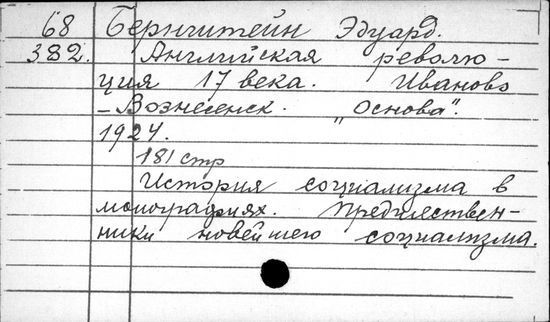 68 Бернштейн Эдуард.
382. Английская револю-
ция 17 века. Иваново
-Вознесенск. „Основа".
1924.
181 стр
История социализма в
монографиях. Предшествен-
ники новейшего социализма.